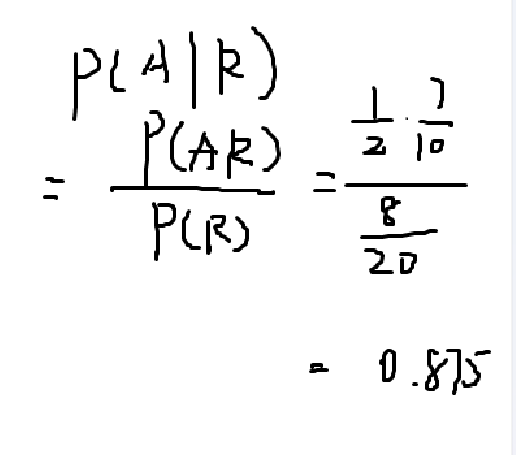 P(A|R)
= P(AR)/P(R) = (1/2 · 7/10)/(8/20)
= 0.875